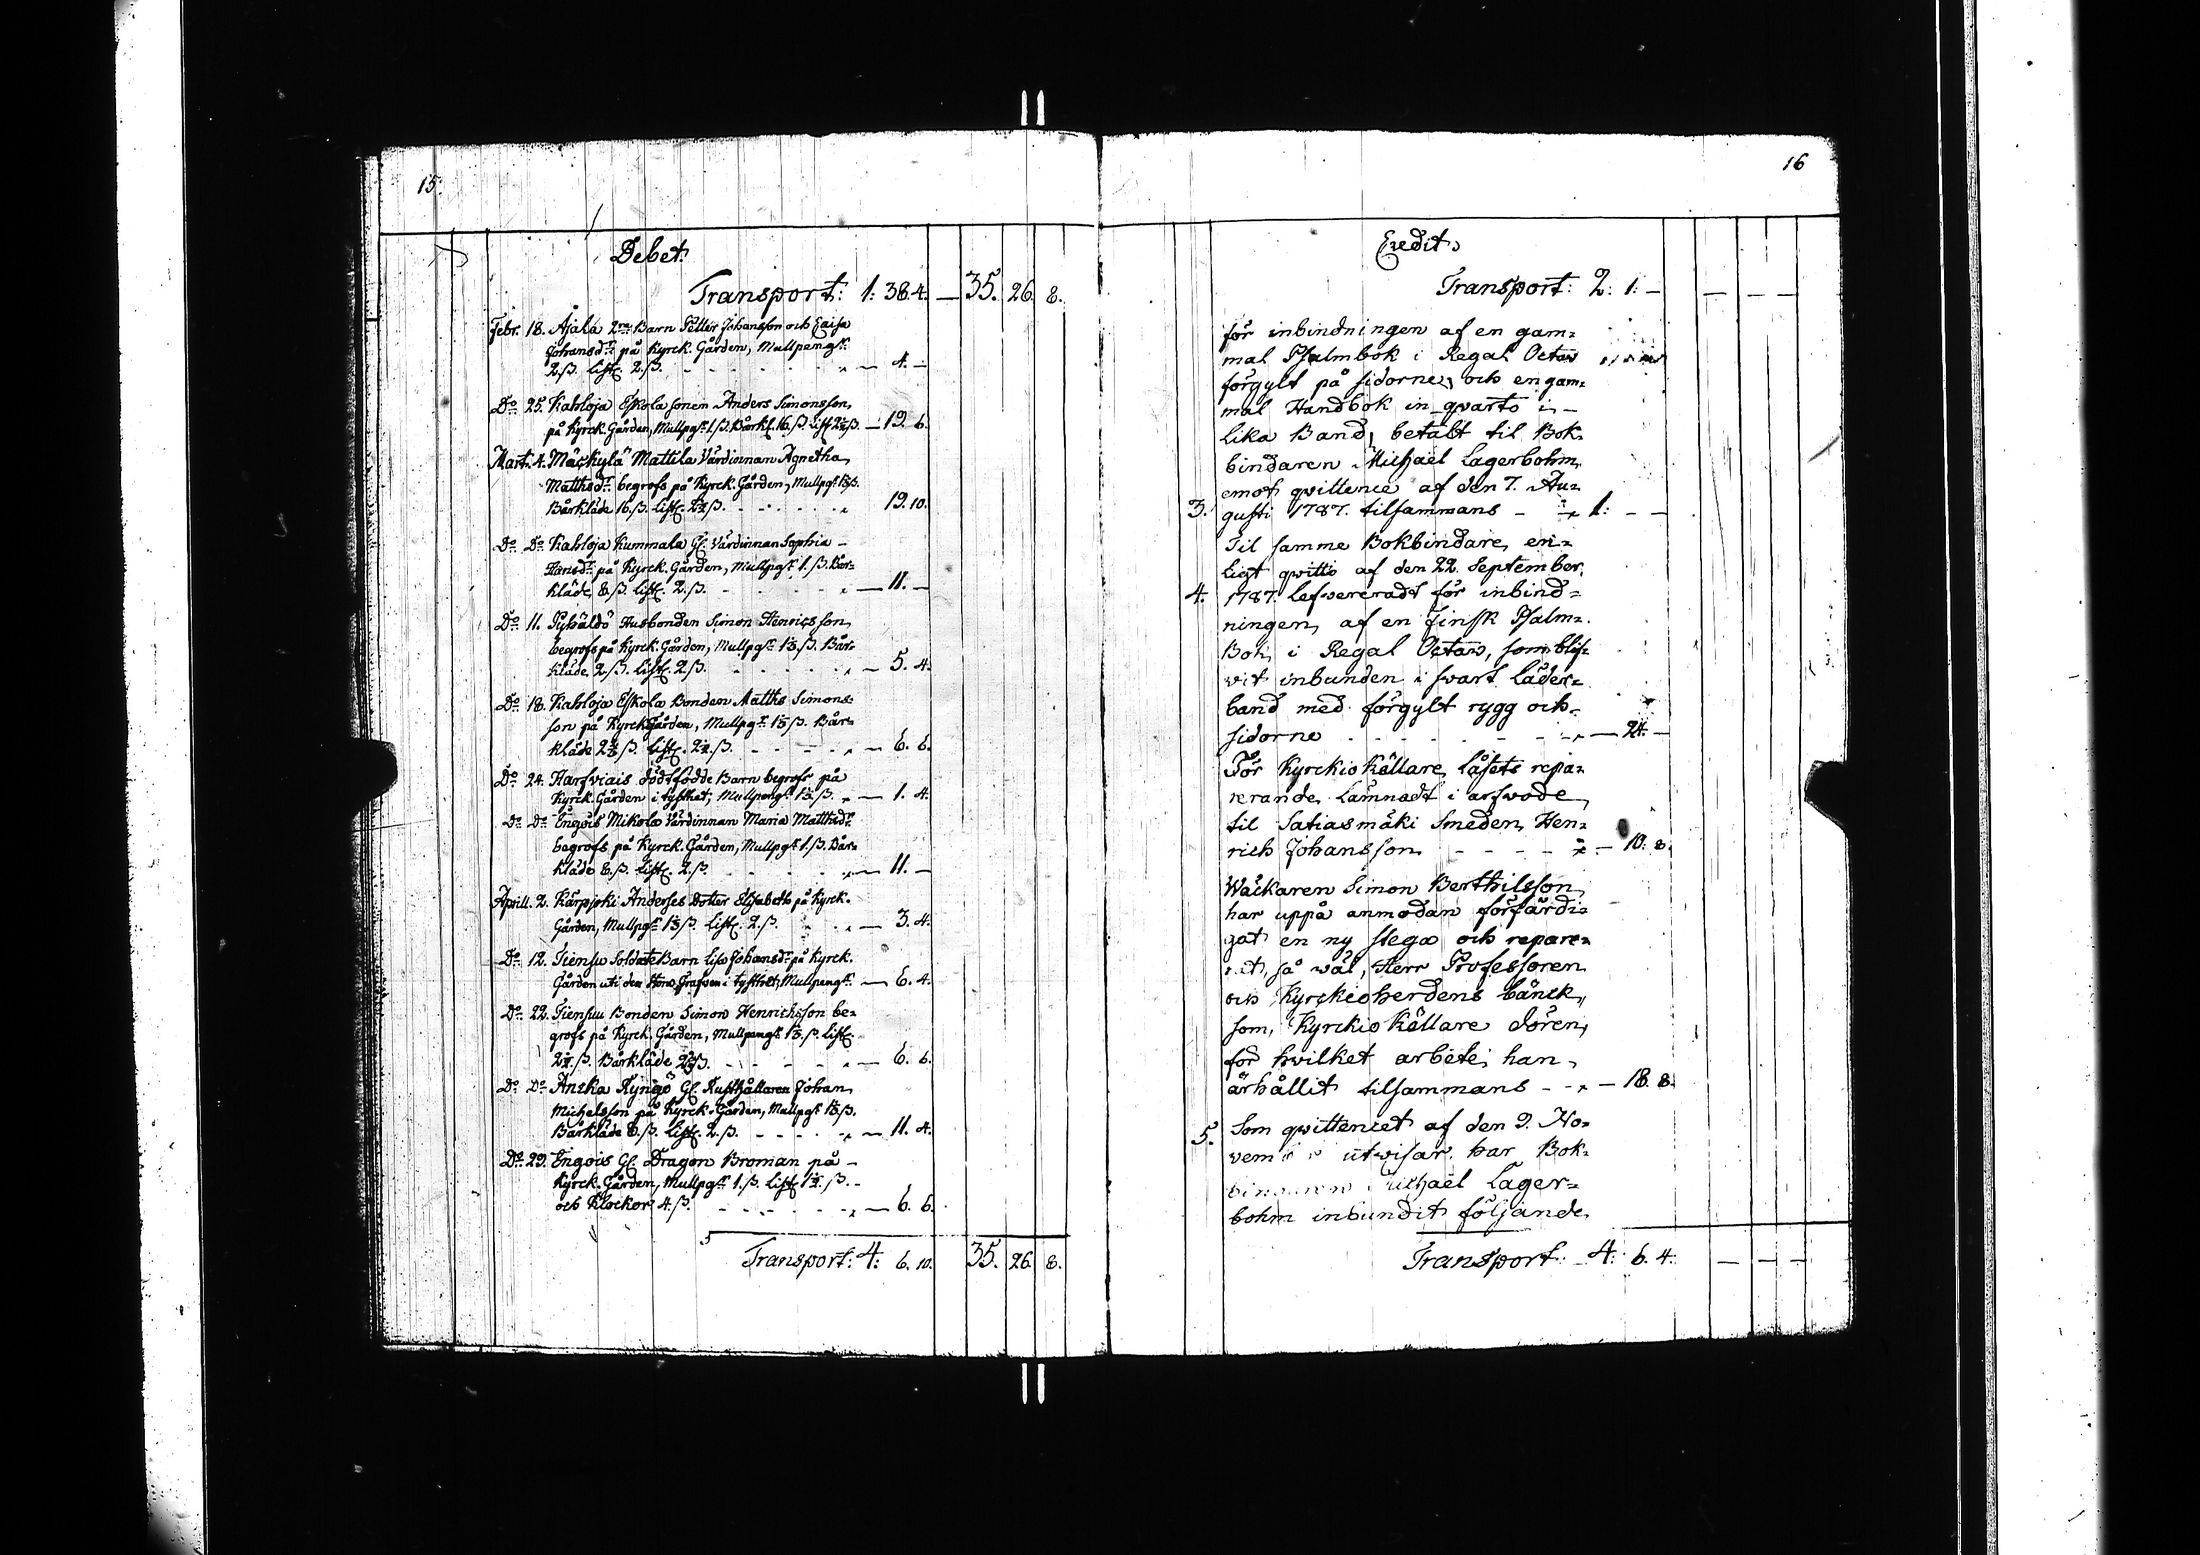 15.
Debet.
Transport: 1: 38. 4. — 35. 26. 8.
Febr. 18. Åjala 2ne Barn Petter Johansson och Caisa
Johansd:r på Kyrck. Gården, Mullpeng:r
2.ß. list. 2.ß. - - - - - " — 4. —
D:o 25. Kahloja Eskola sonen Anders Simonsson,
på Kyrck. Gården, Mullpg:r 1.ß. Bårkl. 16.ß. list 2½ß. — 19. 6.
Mart. 4. Mäckylä Mattila Värdinnan Agnetha,
Matthsd:r begrofs på Kyrck. Gården, Mullpg:r 1⅓ß.
Bårkläde 16.ß. list. 2½ß. - - - - " 19. 10.
D:o D:o Kahloja Kummala Gl. Värdinnan Sophia -
Hansd:r på Kyrck. Gården, Mullpg:r 1.ß. Bår=
kläde, 8.ß. list. 2.ß. - - - - " — 11. —
D:o 11. Pyhäldö Husbonden Simon Henricsson,
begrofs på Kyrck. Gården, Mullpg:r 1⅓.ß. Bår=
kläde 2.ß. list. 2.ß. - - - - " — 5. 4.
D:o 18. Kahloja Eskola Bonden Matths Simons=
son på Kyrck Gården, Mullpg:r 1⅓ß. Bår=
kläde 2⅔ß. list. 2½.ß. - - - - " — 6. 6.
D:o 24. Harfviais dödsfödde Barn begrofs på
Kyrck. Gården i tysthet, Mullpeng:r 1⅓.ß. " — 1. 4.
D:o D:o Engois Mikola Värdinnan Maria Matthsd:r
begrofs på Kyrck. Gården, Mullpg:r 1.ß. Bår=
kläde 8.ß. list. 2.ß. - - - - " — 11. —
Aprill. 2. Karpjoki Anderses Dotter Elisabeth på Kyrck.
Gården, Mullpg:r 1⅓ß. list. 2.ß. - - " — 3. 4.
D:o 12. Tiensu Soldate Barn Lisa Johansd:r på Kyrck.
Gården uti den Stora Grafven i tysthet, Mullpeng:r — 6. 4.
D:o 22. Tiensuu Bonden Simon Henrichsson be=
grofs på Kyrck. Gården, Mullpeng:r 1⅓.ß. list.
2½.ß. Bårkläde 2⅔ß. - - - - " — 6. 6.
D:o D:o Anska Kyngö Gl. Rusthållaren Johan,
Michelsson på Kyrck. Gården, Mullpg:r 1⅓ß.
Bårkläde 8.ß. list. 2.ß. - - - - " — 11. 4.
D:o 29. Engois Gl. Dragon Broman på -
Kyrck. Gården, Mullpg:r 1.ß. list 1½.ß. -
och Klockor 4.ß. - - - - " — 6. 6.
Transport: 4: 6. 10. 35. 26. 8.
16
Credit,
Transport: 2: 1: — — — —
för inbindningen af en gam=
mal Psalmbok i Regal Octav
förgylt på sidorne, och en gam=
mal Handbok in qvarto i -
lika Band, betalt til Bok=
bindaren Michaël Lagerbohm,
emot qvittence af den 7. Au=
3. gusti 1787. tilsammans - " 1: — —
Til samme Bokbindare, en=
ligt qvitto af den 22. September,
4. 1787. lefvereradt för inbind=
ningen, af en Finsk Psalm=
Bok, i Regal Octav, som blif=
vit inbunden i svart läder=
band med förgylt rygg och
sidorne - - - - - " — 24. —
För Kyrckio Källare låsets repa=
rerande, lämnadt i arfvode,
til Satiasmäki Smeden, Hen=
rich Johansson - - - - " — 10. 8.
Wäckaren Simon Berthilsson,
har uppå anmodan förfärdi=
gat en ny stega och repare=
rat, så väl, Herr Professoren
och Kyrckioherdens bänck,
som, Kyrckio Källare dören,
för hvilket arbete, han,
ärhållit tilsammans - " — 18. 8.
5. Som qvittencet af den 9. No=
vem utvisar, har Bok=
Michaël Lager=
bohm inbundit följande,
Transport: 4: 6. 4. — — —